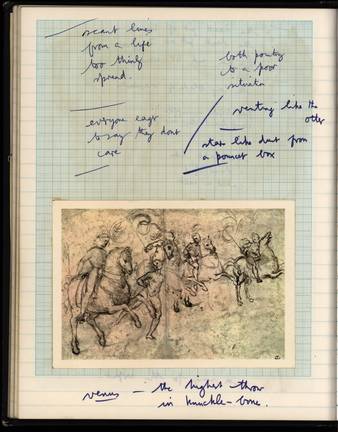 scant lines
from a life
too thinly
spread.
both pointing
to a poor
everyone eager
to say they dont
care
venting like the
other
stars like dust from
a pounce box
venus — the highest throw
in knuckle-bone.